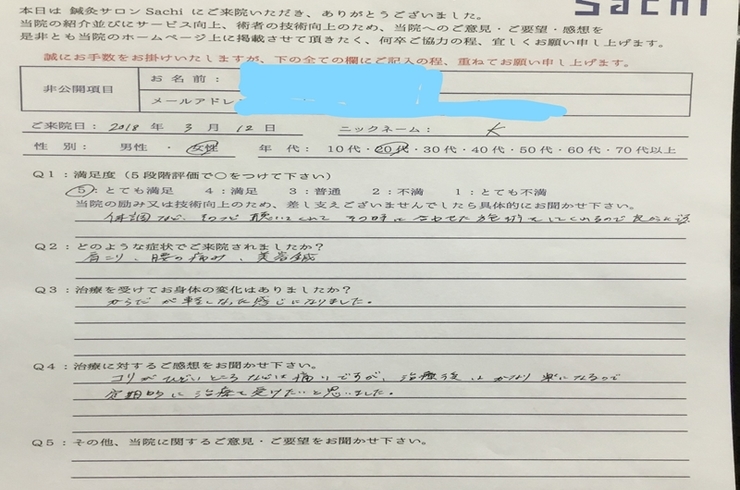 本日は 鍼灸サロン Sachi にご来院いただき、ありがとうございました。
Sachi
当院の紹介並びにサービス向上、術者の技術向上のため、当院へのご意見・ご要望・感想を
是非とも当院のホームページ上に掲載させて頂きたく、何卒ご協力の程、宜しくお願い申し上げます。
誠にお手数をお掛けいたしますが、下の全ての欄にご記入の程、重ねてお願い申し上げます。
非公開項目
お名前:
メールアドレ
ご来院日: 2018 年 3 月 12 日 ニックネーム: K
性 別: 男性 ・ 女性 年 代: 10代・20代・30代・40代・50代・60代・70代以上
Q1:満足度(5段階評価で○をつけて下さい)
5:とても満足 4:満足 3:普通 2:不満 1:とても不満
当院の励み又は技術向上のため、差し支えございませんでしたら具体的にお聞かせ下さい。
体調など、 聴いてくれて その時に合わせた施術をしてくれるので良かった
Q2:どのような症状でご来院されましたか?
肩こり、腰の痛み、美容鍼
Q3:治療を受けてお身体の変化はありましたか?
からだが軽くなった感じになりました。
Q4:治療に対するご感想をお聞かせ下さい。
コリがひどいところなどは痛いですが、治療後はかなり楽になるので
定期的に治療を受けたいと思いました。
Q5:その他、当院に関するご意見・ご要望をお聞かせ下さい。